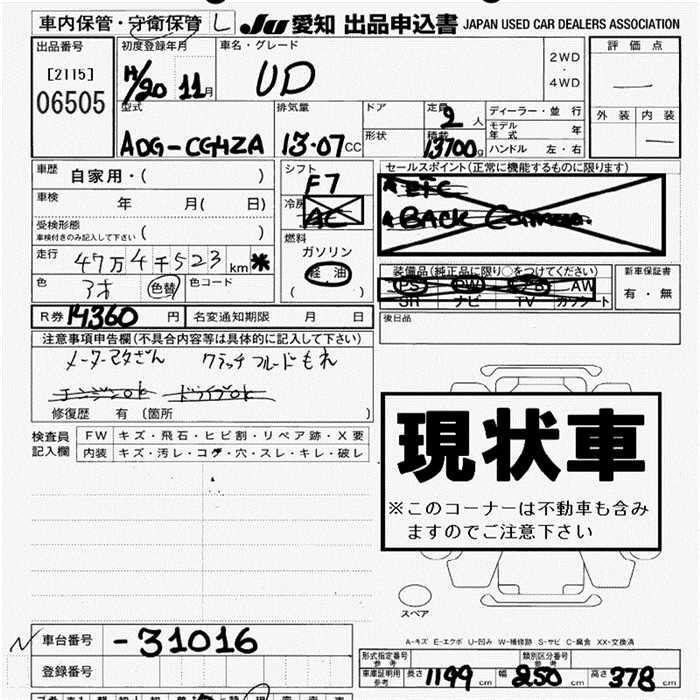 車内保管・守衛保管 L JU 愛知 出品申込書 JAPAN USED CAR DEALERS ASSOCIATION
出品番号 初度登録年月 車名・グレード 2WD ・ 4WD 評価点
[2115]
06505
H/20 11月 UD
外装 内装
型式 排気量 ドア 定員 2人 ディーラー・並行
モデル年式 年
ADG-CG4ZA 13・07CC 形状 積載 13700 ハンドル 左・右
車歴 自家用・( ) シフト F7 セールスポイント(正常に機能するものに限ります)
車検 年 月( 日) 冷房 AC ETC
BACK Camera
受検形態 車検付きのみ記入して下さい ( ) 燃料 ガソリン
走行 47万4千523km * 軽油 装備品(純正品に限り○をつけてください) 新車保証書
( ) PS PW AW 有・無
色 色替 色コード SR ナビ TV カセット
R券 14360円 名変通知期限 月 日 後日品
注意事項申告欄(不具合内容等は具体的に記入して下さい)
メーター クラッチフルードもれ
エンジンok ドライブok
修復歴 有 (箇所 )
検査員 記入欄 FW キズ・飛石・ヒビ割・リペア跡・X要
内装 キズ・汚レ・コゲ・穴・スレ・キレ・破レ
現状車
※このコーナーは不動車も含みますのでご注意下さい
スペア
A-キズ E-エクボ U-凹み W-補修跡 S-サビ C-腐食 XX-交換済
車台番号 -31016
登録番号
形式指定番号 参考 類別区分番号 参考
車庫証明用 参考 長さ 1199 cm 幅 250 cm 高さ 378 cm